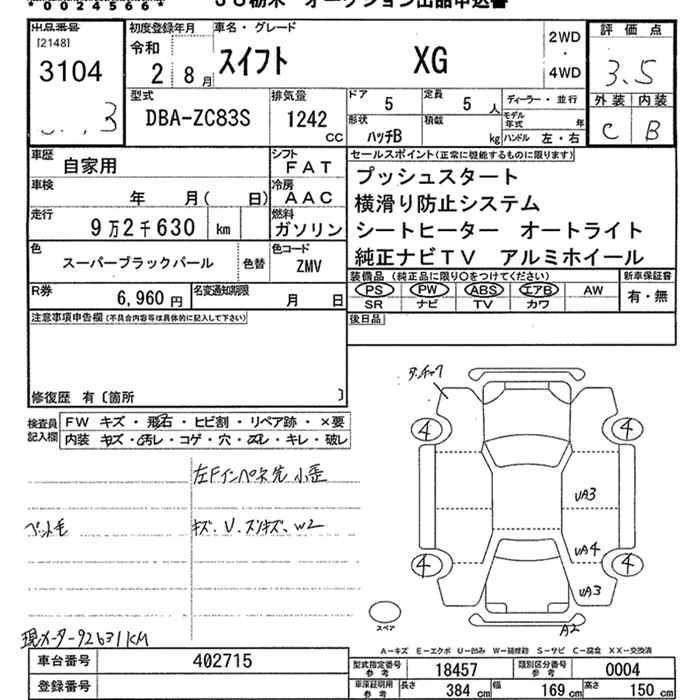 *00245664*
JU栃木 オークション出品申込書
出品番号
[2148]
3104
初度登録年月
令和
2 8月
車名・グレード
スイフト XG
2WD
・
4WD
評価点
3.5
型式
DBA-ZC83S
排気量
1242
CC
ドア
5
定員
5 人
形状
ハッチB
積載
kg
ディーラー・並行
モデル年式 年
ハンドル 左・右
外装 内装
C B
車歴
自家用
シフト
FAT
車検
年 月( 日)
冷房
AAC
走行
9万2千630 km
燃料
ガソリン
色
スーパーブラックパール
色替
色コード
ZMV
R券
6,960円
名変通知期限
月 日
セールスポイント(正常に機能するものに限ります)
プッシュスタート
横滑り防止システム
シートヒーター オートライト
純正ナビTV アルミホイール
装備品 (純正品に限り○をつけてください)
PS PW ABS エアB AW
SR ナビ TV カワ
新車保証書
有・無
注意事項申告欄(不具合内容等は具体的に記入して下さい)
後日品
修復歴 有〔箇所 〕
検査員記入欄
FW キズ・飛石・ヒビ割・リペア跡・×要
内装 キズ・汚レ・コゲ・穴・スレ・キレ・破レ
左Fインパネ先 小歪
ペット毛
キズ、U、スリキズ、W2
現メーター92631KM
4
4
4
4
UA3
UA4
UA3
A2
スペア
A-キズ E-エクボ U-凹み W-補修跡 S-サビ C-腐食 XX-交換済
車台番号
402715
登録番号
型式指定番号
参考
18457
類別区分番号
参考
0004
車庫証明用
参考
長さ 384 cm 幅 169 cm 高さ 150 cm